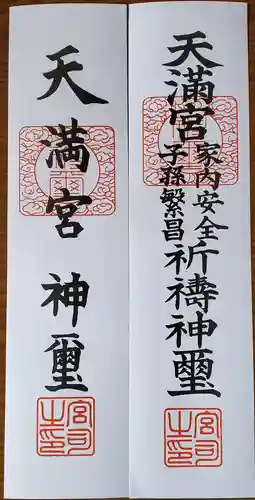 天満宮 神璽
天滿宮
家内安全
子孫繁昌
祈禱神璽
宮司之印
宮司之印